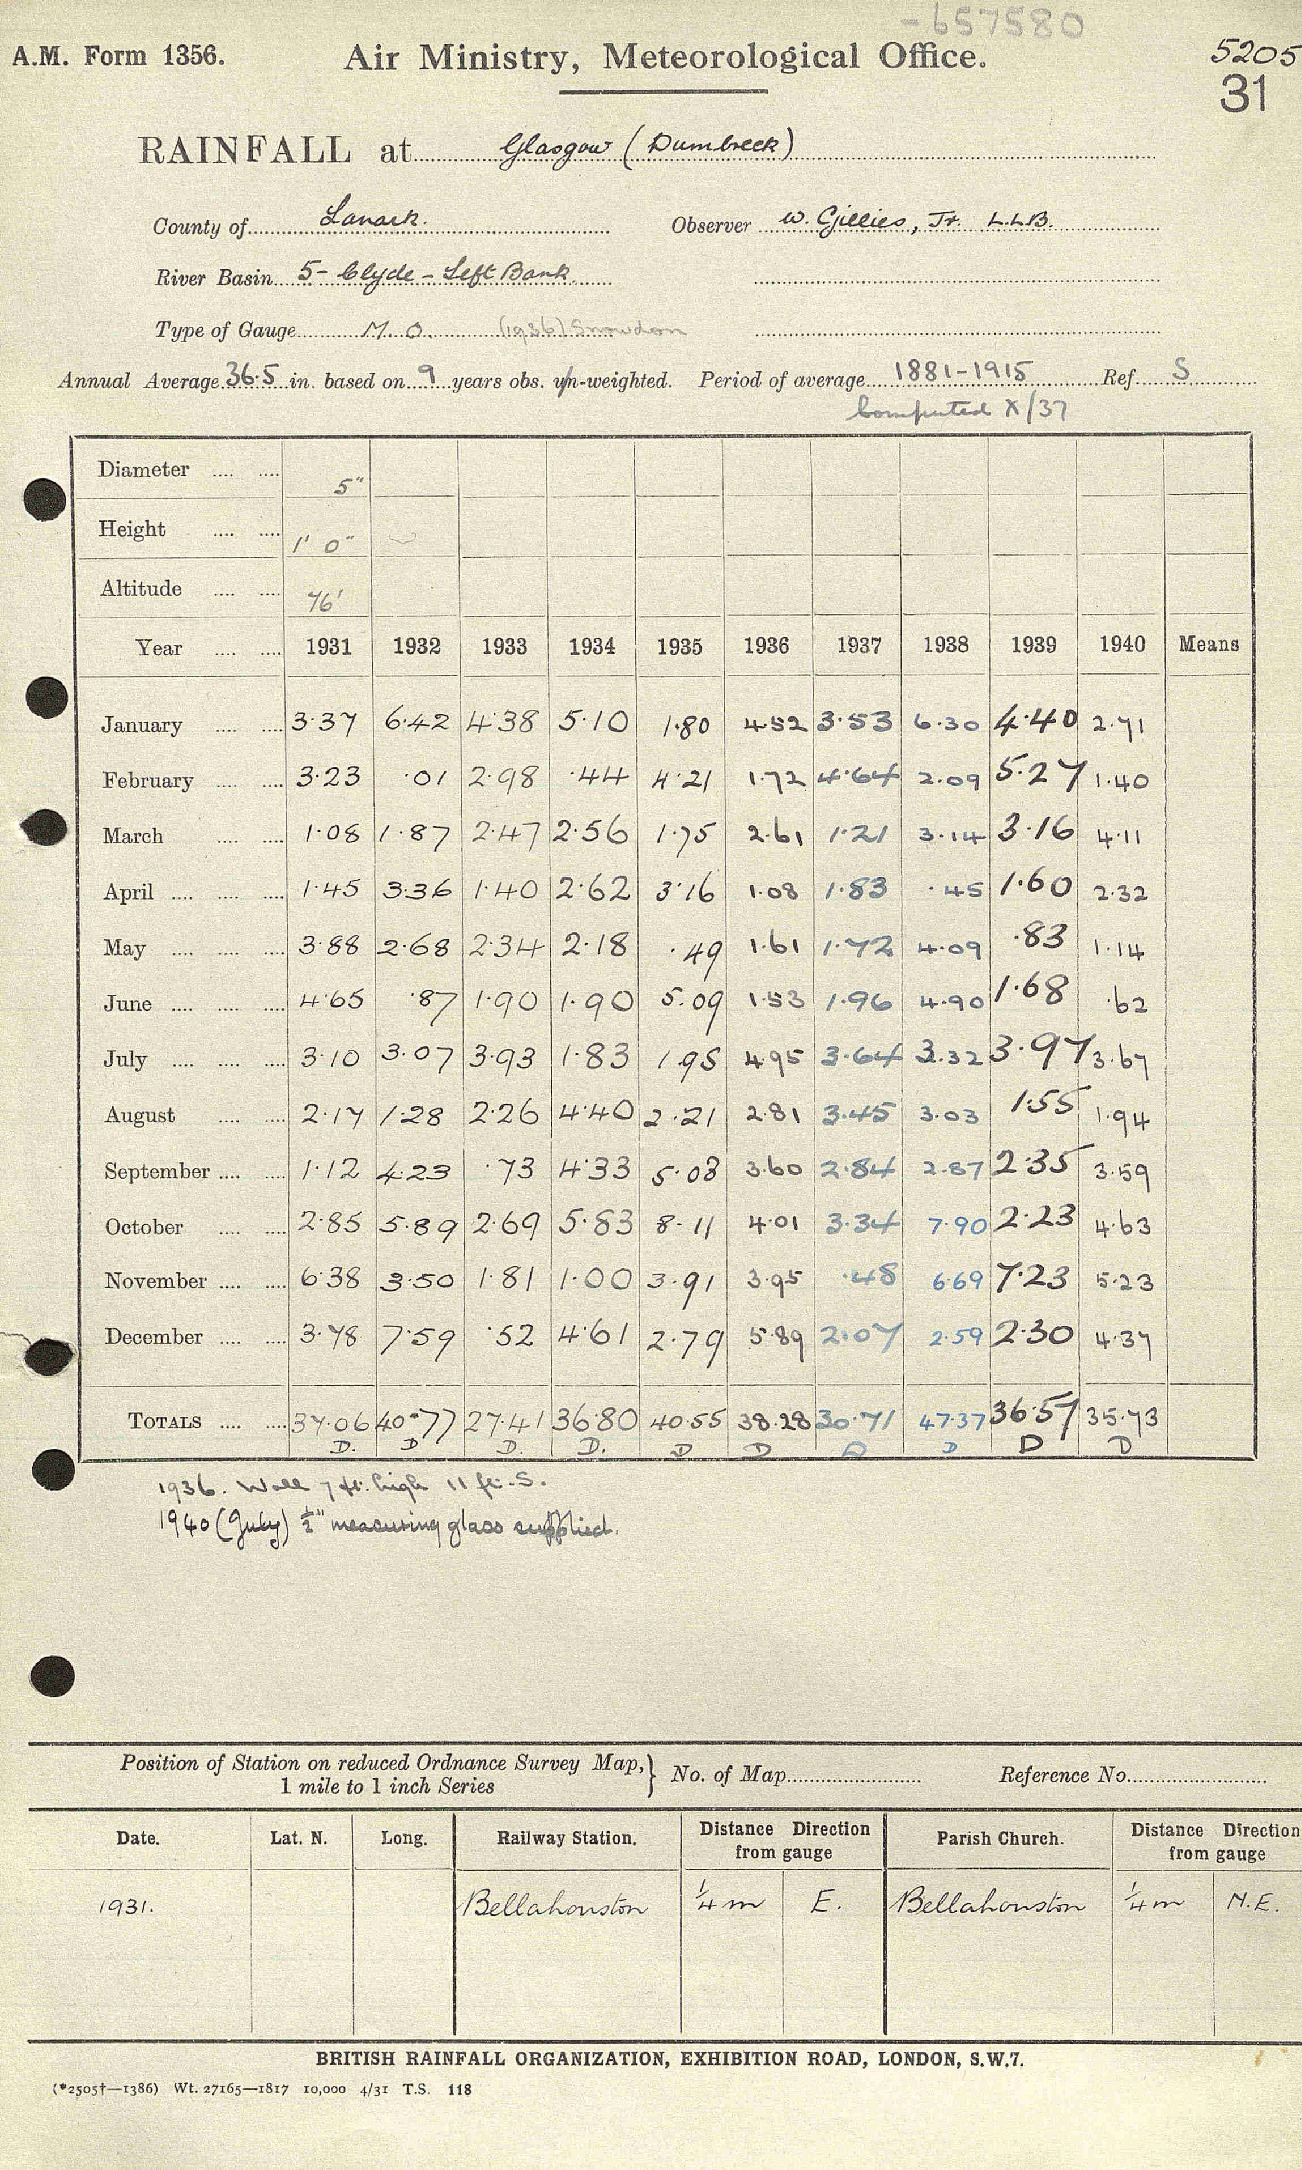 -657580
A.M. Form 1356.
Air Ministry, Meteorological Office.
5205
31
RAINFALL at Glasgow (Dumbreck)
County of Lanark.
Observer W. Gillies, Jr. L.L.B.
River Basin 5- Clyde - Left Bank.
Type of Gauge M.O. (1936) Snowdon
Annual Average 36.5 in. based on 9 years obs. un-weighted. Period of average 1881-1915 Ref. S
Computed X/37
Diameter .... .... 5"
Height .... .... 1' 0"
Altitude .... .... 76'
Year .... .... 1931 1932 1933 1934 1935 1936 1937 1938 1939 1940 Means
January .... .... 3.37 6.42 4.38 5.10 1.80 4.52 3.53 6.30 4.40 2.71
February .... .... 3.23 .01 2.98 .44 4.21 1.72 4.64 2.09 5.27 1.40
March .... .... 1.08 1.87 2.47 2.56 1.75 2.61 1.21 3.14 3.16 4.11
April .... .... .... 1.45 3.36 1.40 2.62 3.16 1.08 1.83 .45 1.60 2.32
May .... .... .... 3.88 2.68 2.34 2.18 .49 1.61 1.72 4.09 .83 1.14
June .... .... .... 4.65 .87 1.90 1.90 5.09 1.53 1.96 4.90 1.68 .62
July .... .... .... 3.10 3.07 3.93 1.83 1.95 4.95 3.64 3.32 3.97 3.67
August .... .... 2.17 1.28 2.26 4.40 2.21 2.81 3.45 3.03 1.55 1.94
September .... .... 1.12 4.23 .73 4.33 5.08 3.60 2.84 2.87 2.35 3.59
October .... .... 2.85 5.89 2.69 5.83 8.11 4.01 3.34 7.90 2.23 4.63
November .... .... 6.38 3.50 1.81 1.00 3.91 3.95 .48 6.69 7.23 5.23
December .... .... 3.78 7.59 .52 4.61 2.79 5.89 2.07 2.59 2.30 4.37
TOTALS .... .... 37.06 40.77 27.41 36.80 40.55 38.28 30.71 47.37 36.57 35.73
D. D D. D. D D D D D D
1936. Wall 7 ft. high 11 ft. S.
1940 (July) ½" measuring glass supplied.
Position of Station on reduced Ordnance Survey Map, 1 mile to 1 inch Series } No. of Map Reference No.
Date. Lat. N. Long. Railway Station. Distance Direction from gauge Parish Church. Distance Direction from gauge
1931. Bellahouston ¼ m E. Bellahouston ¼ m N.E.
BRITISH RAINFALL ORGANIZATION, EXHIBITION ROAD, LONDON, S.W.7.
(*2505†—1386) Wt. 27165—1817 10,000 4/31 T.S. 118